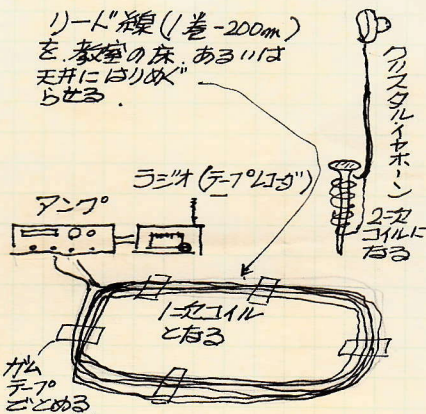 リード線(1巻-200m)
を、教室の床、あるいは
天井にはりめぐ
らせる.
クリスタルイヤホーン
ラジオ(テープレコーダ)
アンプ
2次
コイルに
なる
1次コイル
となる
ガム
テープ
でとめる